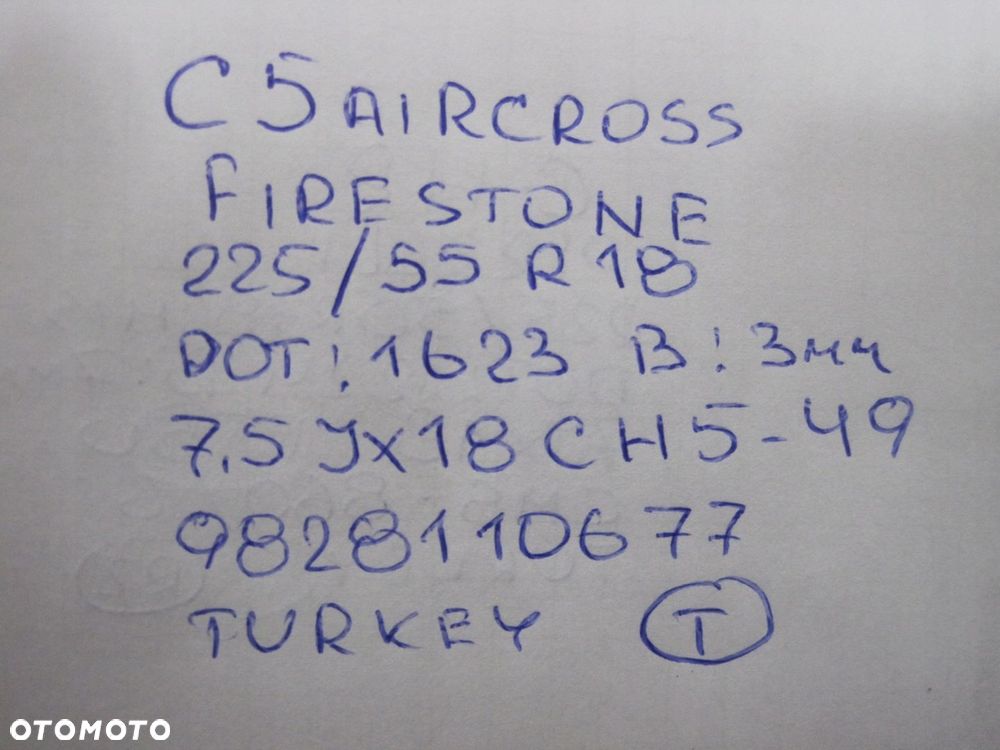 C5 AIRCROSS
FIRESTONE
225/55 R 18
DOT: 1623 B: 3мм
7.5 J x 18 CH5-49
9828110677
TURKEY T
OTOMOTO